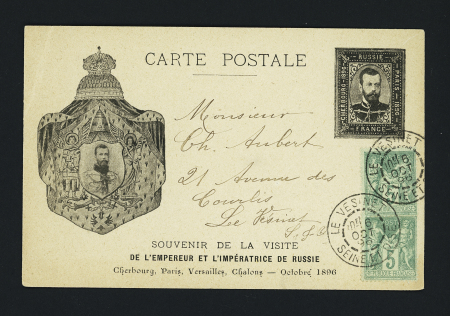 CARTE POSTALE
RUSSIE
CHERBOURG-1896
PARIS-1896
FRANCE
Monsieur
Ch. Aubert
21 Avenue des
Courlis
Le Vésinet
S. & O.
LE VESINET
OCT
SEINE-ET-
LE VESINET
OCT
SEINE-ET-
5
SOUVENIR DE LA VISITE
DE L'EMPEREUR ET L'IMPÉRATRICE DE RUSSIE
Cherbourg, Paris, Versailles, Chalons — Octobre 1896